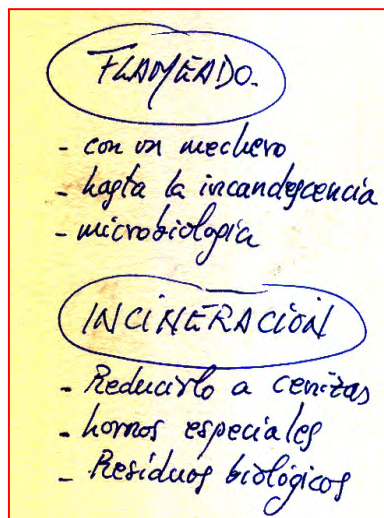 FLAMEADO.
- con un mechero
- hasta la incandescencia
- microbiología
INCINERACIÓN
- Reducirlo a cenizas
- hornos especiales
- Residuos biológicos